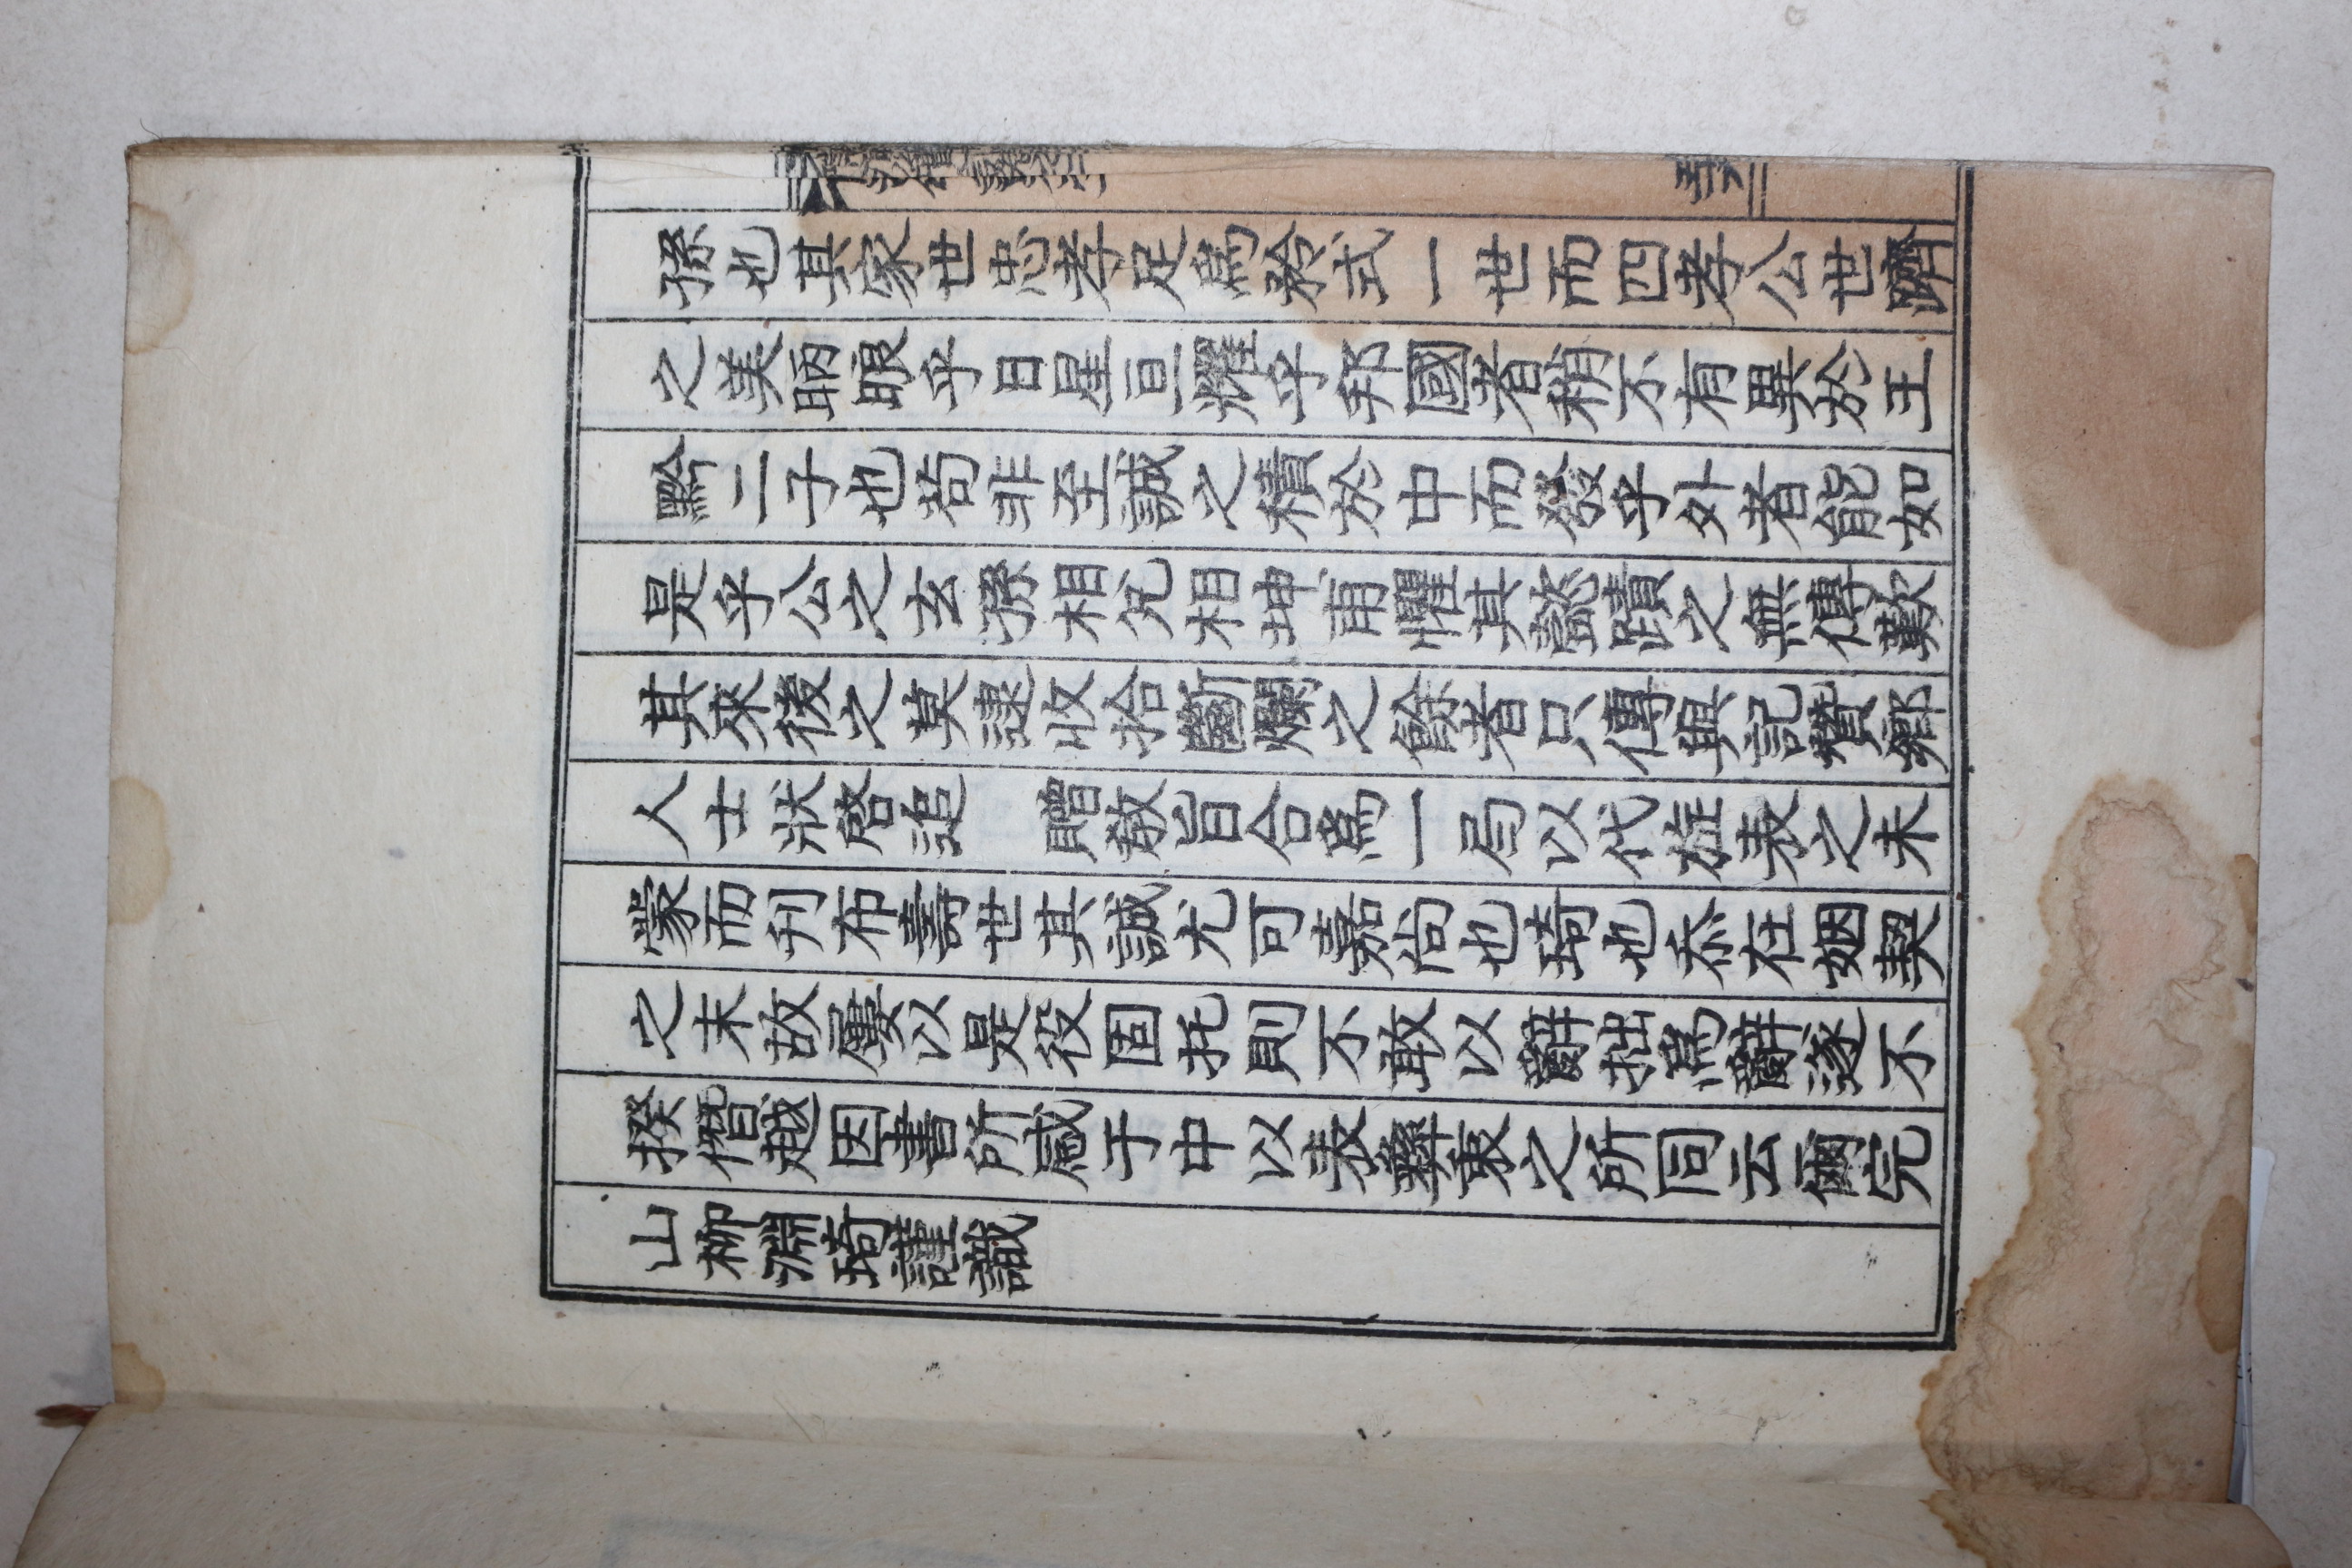 孫也其家世忠孝足爲矜式一世而四孝公世濟
之美昞眼乎日星亘耀乎邦國者稍不有異於王
黔二子也苟非至誠之積於中而發乎外者能如
是乎公之玄孫相允相坤甫懼其懿蹟之無傳歎
其來後之莫收拾斷爛之餘者只傳與記贊鄕
人士狀啓 贈敎旨合爲一局以代旌表之未
蒙而刋布壽世其誠尤可嘉尙也琦也忝在姻契
之末故屢以是役固托則不敢以辭拙爲辭遂不
揆僭越因書所感于中以表彛衷之所同云爾完
山柳淵琦謹識